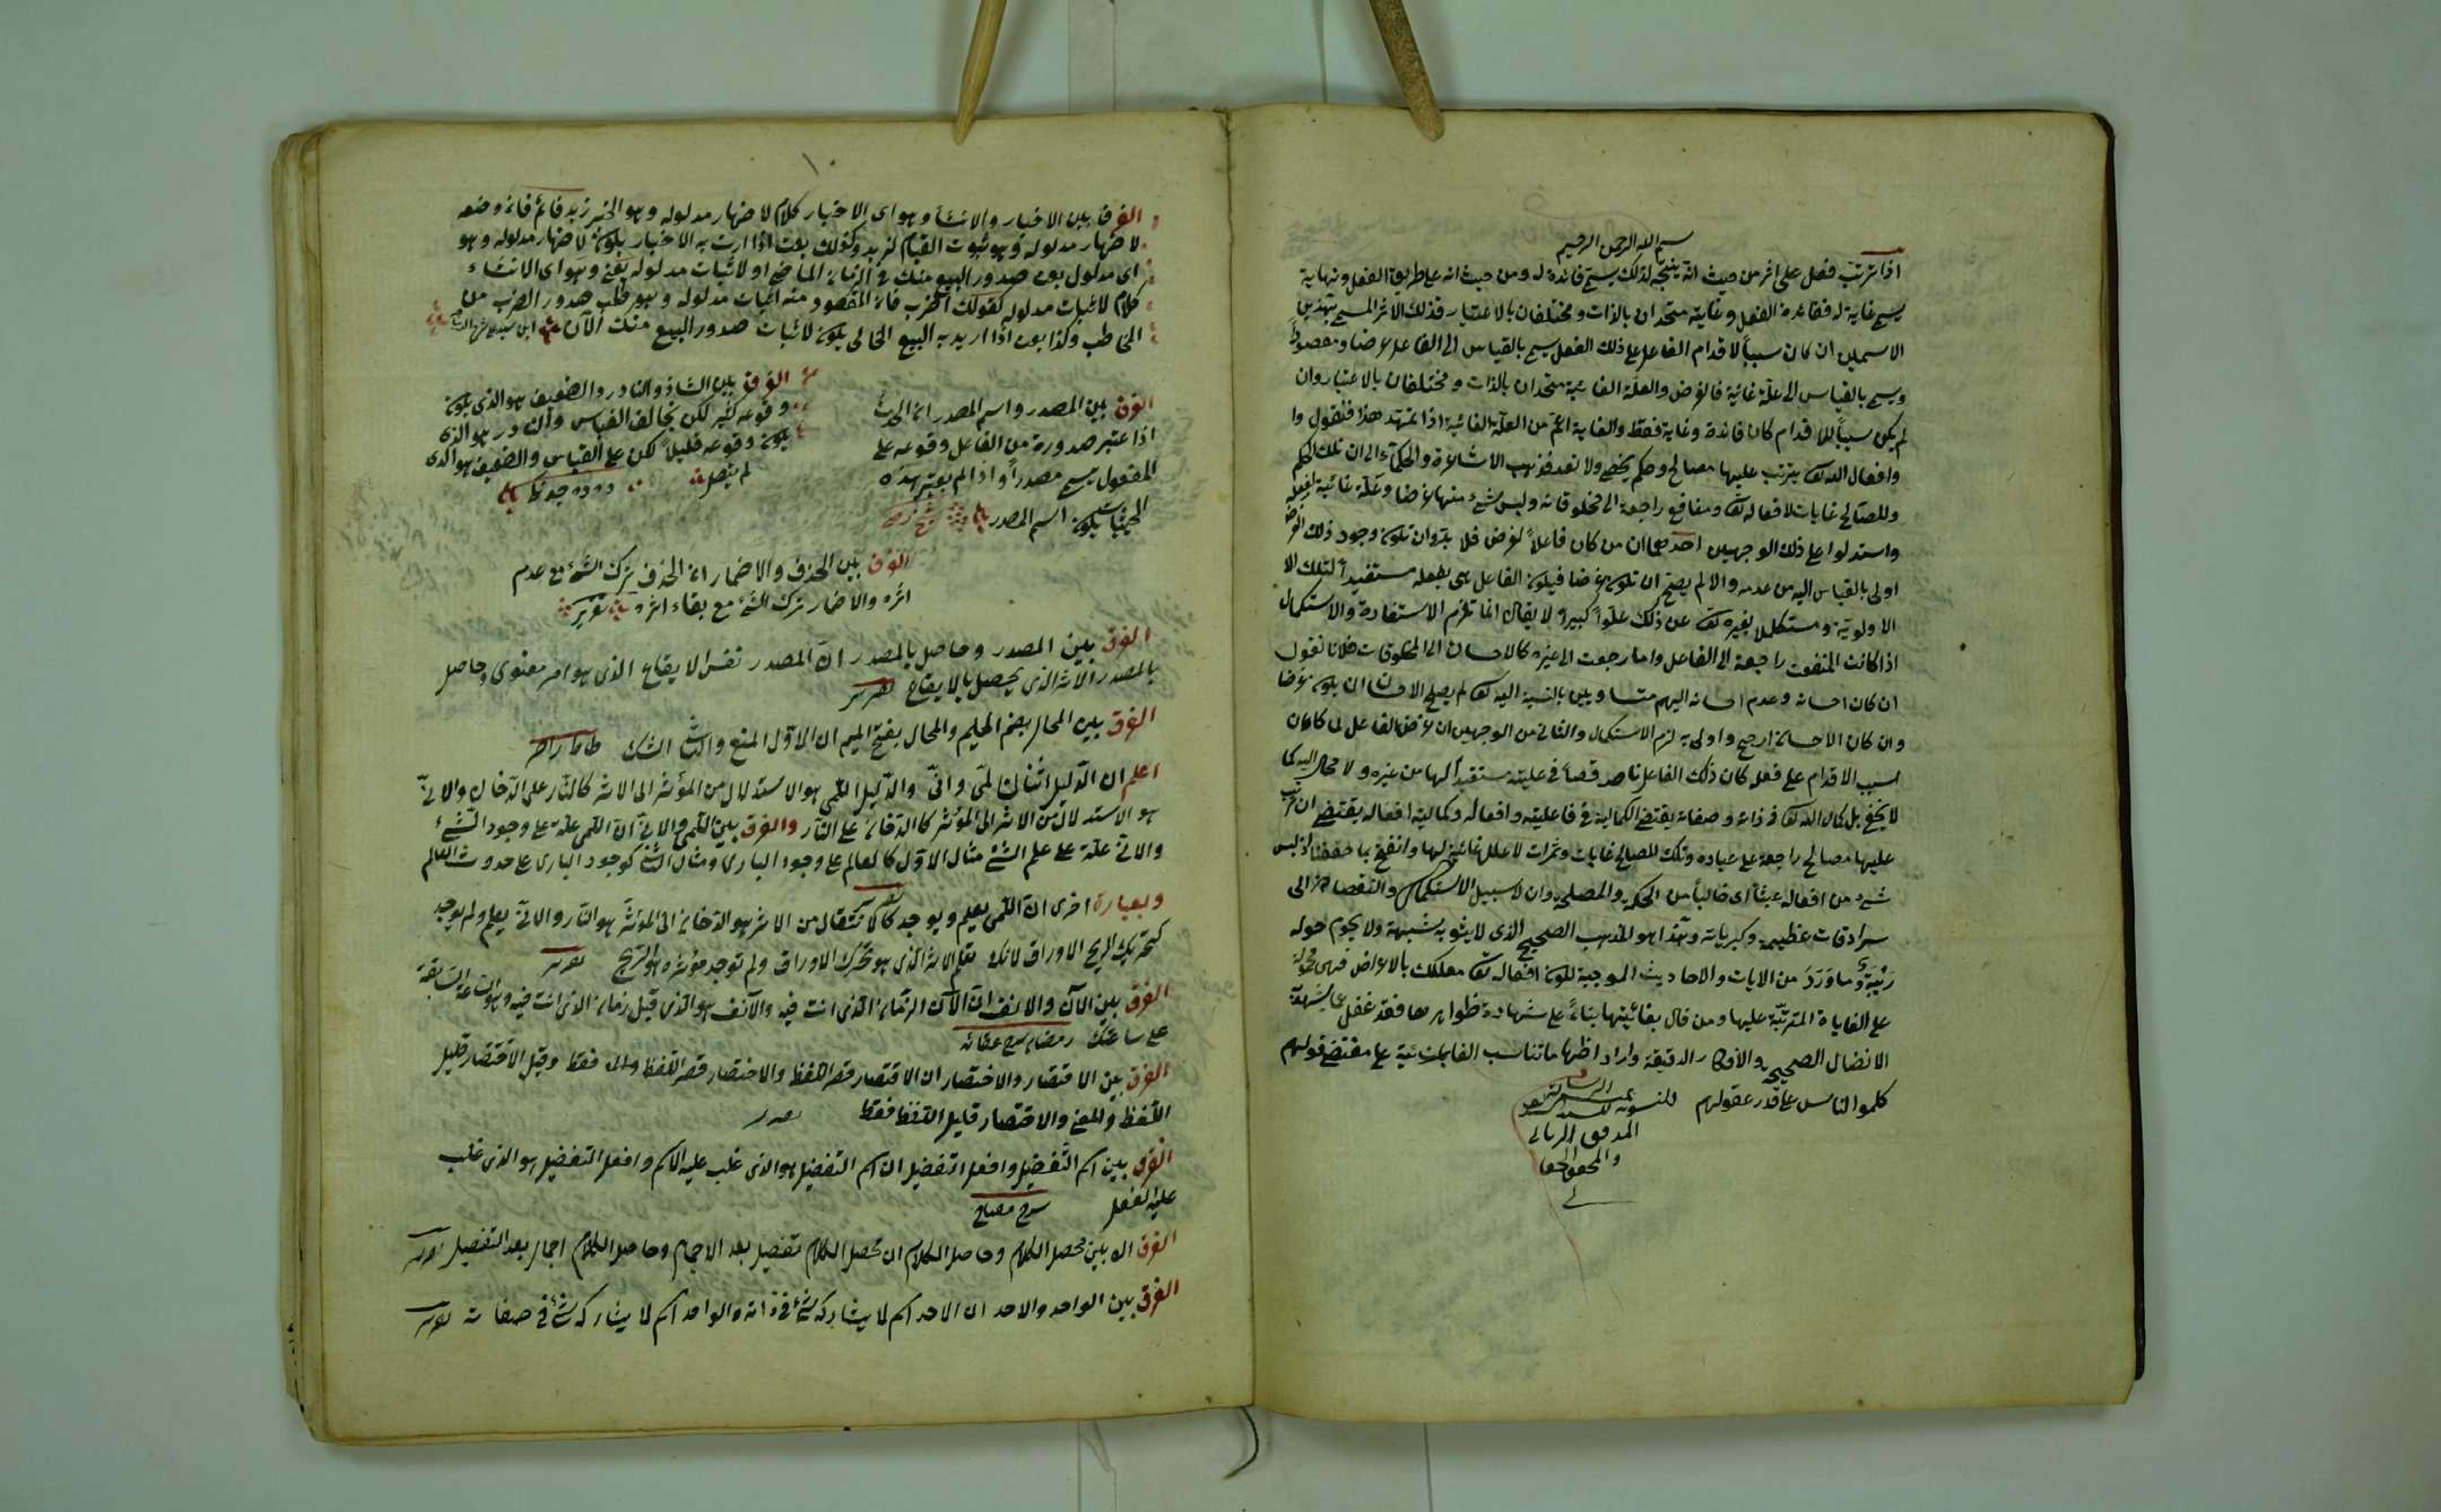 بسم الله الرحمن الرحيم
اذا ترتب فعل على اثر من حيث انه ينتجه لذلك يسمى فائدة له ومن حيث انه على طرف الفعل ونهاية
يسمى غاية له ففائدة الفعل وغايته متحدان بالذات ومختلفان بالاعتبار فذلك الاثر المسمى بهذين
الاسمين ان كان سبباً لاقدام الفاعل على ذلك الفعل يسمى بالقياس الى الفاعل غرضا ومقصوداً
ويسمى بالقياس الى علة غائية فالغرض والعلة الغائية متحدان بالذات ومختلفان بالاعتبار وان
لم يكن سبباً للاقدام كان فائدة وغاية فقط والغاية اعم من العلة الغائية اذا تمهد هذا فنقول وا
وافعال الله تع يترتب عليها مصالح وحكم يخصى ولا تعد فذهب الاشاعرة والحكماء الى ان تلك الحكم
وللصالح غايات لافعاله تع ومنافع راجعة الى مخلوقاته وليس شئ منها غرضا وعلة غائية لفعله
واستدلوا على ذلك الوجهين احدهما ان من كان فاعلاً لغرض فلا بد وان تكون وجود ذلك الغرض
اولى بالقياس اليه من عدمه والا لم يصح ان تكون غرضا فيكون الفاعل بفعله مستفيداً لتلك الا
الاولوية ومستكملا بغيره تع عن ذلك علواً كبيراً لا يقال انما تلزم الاستفادة والاستكمال
اذا كانت المنفعت راجعة الى الفاعل واما رجعت الى غيره كالاحسان الى المخلوقات فلانا نقول
ان كان احسانه وعدم احسانه اليهم متساويين بالنسبة اليه تع لم يصلح الاحسان ان يكون غرضا
وان كان الاحسان ارجح واولى به لزم الاستكمال والثانى من الوجهين ان غرض الفاعل لما كان
لسبب الاقدام على فعله كان ذلك الفاعل ناقصا فى عليته مستفيداً لها من غيره ولا مجال اليه كما
لا يخفى بل كمال الله تع فى ذاته وصفاته يقتضى الكمالية فى فاعليته وافعاله وكمالية افعاله يقتضى ان يترتب
عليها مصالح راجعة على عباده وتلك المصالح غايات وثمرات لا علل غائية لها واتضح بما حققنا اذ ليس
شئ من افعاله عبثاً اى خالياً من الحكمة والمصلحة وان لا سبيل الاستكمال والنقصان الى
سرادقات عظمته وكبريائه وهذا هو المذهب الصحيح الذى لا يشوبه شبهة ولا يحوم حوله
ريبة وما ورد من الايات والاحاديث الموجبة لكون افعاله تع معللة بالاغراض فهى محمولة
على الغاياة المترتبة عليها ومن قال بغائيتها بناءً على شهادة ظواهرها فقد غفل عما يشهد به
الانظار الصحيحة والافكار الدقيقة واراد اظهار ما تناسب الغايات على مقتضى قولهم
كلموا الناس على قدر عقولهم
تمت الرسالة
المنسوبة للسيد
المدقق الربانى
والمحقق الحقانى
١٠
الفرق بين الاخبار والانشاء وهو اى الاخبار كلام لاظهار مدلوله وهو الخبر زيد قائم فانه وضعه
لاظهار مدلوله وهو ثبوت القيام لزيد وكذلك بعت اذا اردت به الاخبار يكون لاظهار مدلوله وهو
اى مدلول بعت صدور البيع منك فى الزمان الماضى او لاثبات مدلوله يعنى وهو اى الانشاء
كلام لاثبات مدلوله كقولك اضرب فان المقصود منه اثبات مدلوله وهو طلب صدور الضرب من
المخاطب وكذا بعت اذا اريد به البيع الحالى يكون لاثبات صدور البيع منك الآن
الفرق بين المصدر واسم المصدر ان الحدث
اذا عتبر صدوره من الفاعل وقوعه على
المفعول يسمى مصدراً واذا لم يعتبر بهذه
الحيثيات يكون اسم المصدر
الفرق بين الشاذ والنادر والضعيف هو الذى يكون
وقوعه كثير لكن يخالف القياس والنادر هو الذى
يكون وقوعه قليلاً لكن على القياس والضعيف هو الذى
لم يتصل
الفرق بين الحذف والاضمار ان الحذف يترك الشئ مع عدم
اثره والاضمار ترك الشئ مع بقاء اثره تقرير
الفرق بين المصدر وحاصل بالمصدر ان المصدر نفس الايقاع الذى هو امر معنوى وحاصل
بالمصدر الاثر الذى يحصل بالايقاع تقرير
الفرق بين المحال بضم الميم والمحال بفتح الميم ان الاول المنع والثانى الشك
اعلم ان الدليل اثنان لمى وانى والدليل اللمى هو الاستدلال من المؤثر الى الاثر كالنار على الدخان والانى
هو الاستدلال من الاثر الى المؤثر كالدخان على النار والفرق بين اللمى والانى ان اللمى علة على وجود الشئ
والانى علة على علم الشئ مثال الاول كالعالم على وجود البارى ومثال الثانى كوجود البارى على حدوث العالم
تقرير
وبعبارة اخرى ان اللمى يعلم ويوجد كالانتقال من الاثر هو الدخان الى المؤثر هو النار والانى يعلم ولم يوجد
كتحريك الريح الاوراق لانك تعلم الاثر الذى هو تحرك الاوراق ولم توجد مؤثره هو الريح تقرير
الفرق بين الآن والانف ان الآن الزمان الذى انت فيه والآنف هو الذى قبل زمان الذى انت فيه وهو الساعة السابقة
على ساعتك
الفرق بين الاقتصار والاختصار ان الاقتصار قصر اللفظ والاختصار قصر اللفظ فقط وقيل الاختصار قليل
اللفظ والمعنى والاقتصار قليل اللفظ فقط تقرير
الفرق بين اسم التفضيل وافعل التفضيل ان اسم التفضيل هو الذى غلب عليه الاسم وافعل التفضيل هو الذى غلب
عليه الفعل
الفرق ان بين محصل الكلام وحاصل الكلام ان محصل الكلام تفصيل بعد الاجمال وحاصل الكلام اجمال بعد التفصيل تقرير
الفرق بين الواحد والاحد ان الاحد اسم لا يشاركه شئ فى ذاته والواحد اسم لا يشاركه شئ فى صفاته تقرير